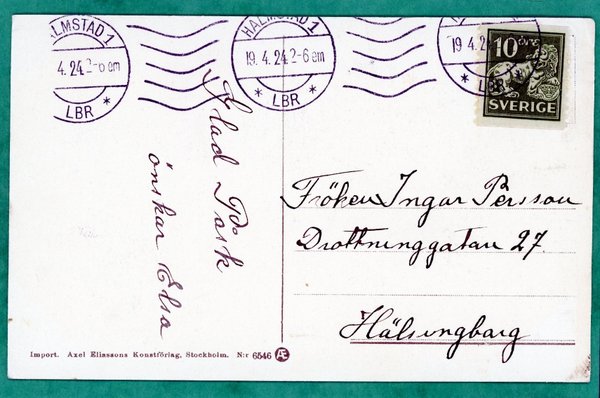 HALMSTAD 1
19.4.24.2-6 em
* LBR *
10 ÖRE
SVERIGE
Glad Påsk
önskar Elsa
Fröken Ingar Persson
Drottninggatan 27.
Hälsingbarg
Import. Axel Eliassons Konstförlag, Stockholm. N:r 6546 AE